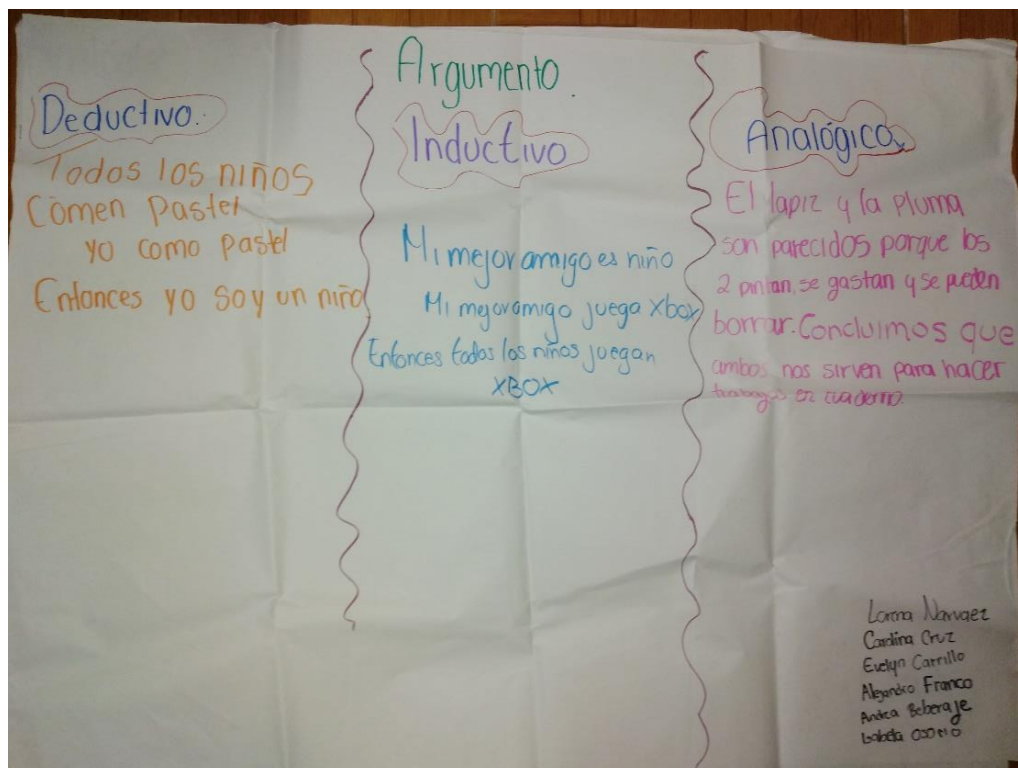 Argumento.
Deductivo.
Todos los niños
Comen Pastel
yo como pastel
Entonces yo soy un niño
Inductivo
Mi mejor amigo es niño
Mi mejor amigo juega xbox
Entonces todos los niños juegan
XBOX
Analógico
El lapiz y la pluma
son parecidos porque los
2 pintan, se gastan y se pueden
borrar. Concluimos que
ambos nos sirven para hacer
en cuaderno.
Lorena Narvaez
Carolina Cruz
Evelyn Carrillo
Alejandro Franco
Andrea Beberaje